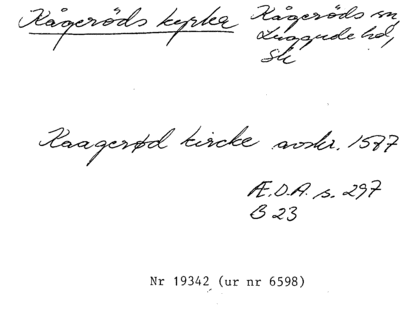 Kågeröds kyrka
Kågeröds sn,
Luggude hd,
Sk
Kaagerød kircke avskr. 1587
Æ.D.A. s. 297
B 23
Nr 19342 (ur nr 6598)